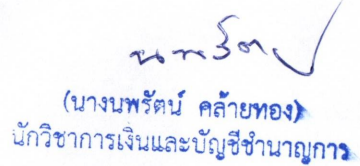 นพรัตน์
(นางนพรัตน์ คล้ายทอง)
นักวิชาการเงินและบัญชีชำนาญการ